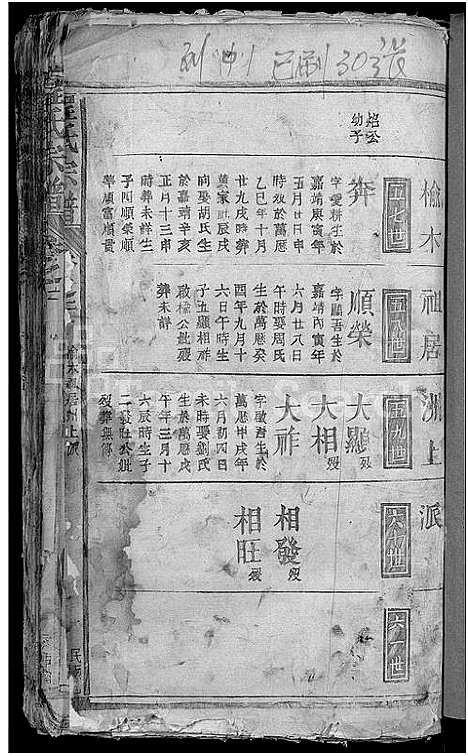 刘卅已刷30張
榆木祖居洲上派
五七世
五八世
五九世
六十世
六一世
焰公
幼子
奔
字愛耕生於
嘉靖庚寅年
五月廿日申
時歿於萬曆
乙巳年十月
廿九戌時葬
黃家
向娶胡氏生
於嘉靖辛亥
正月十三申
時葬未詳生
子四順榮順
華順富順貴
順榮
字顯吾生於
嘉靖丙寅年
六月廿八日
午時娶周氏
生於萬曆癸
酉年九月十
六日午時生
子五顯相祚
啟
葬未詳
大顯歿
大相歿
大祚
字
萬曆甲戌年
六月初四日
未時娶劉氏
生於萬曆戊
午年三月十
六辰時生子
二發旺公妣
歿葬無
相發歿
相旺歿
氏宗譜